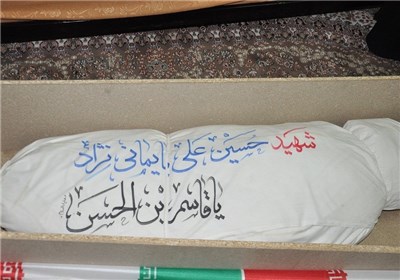 شهید حسین علی بایمانی نژاد
یا قاسم بن الحسن